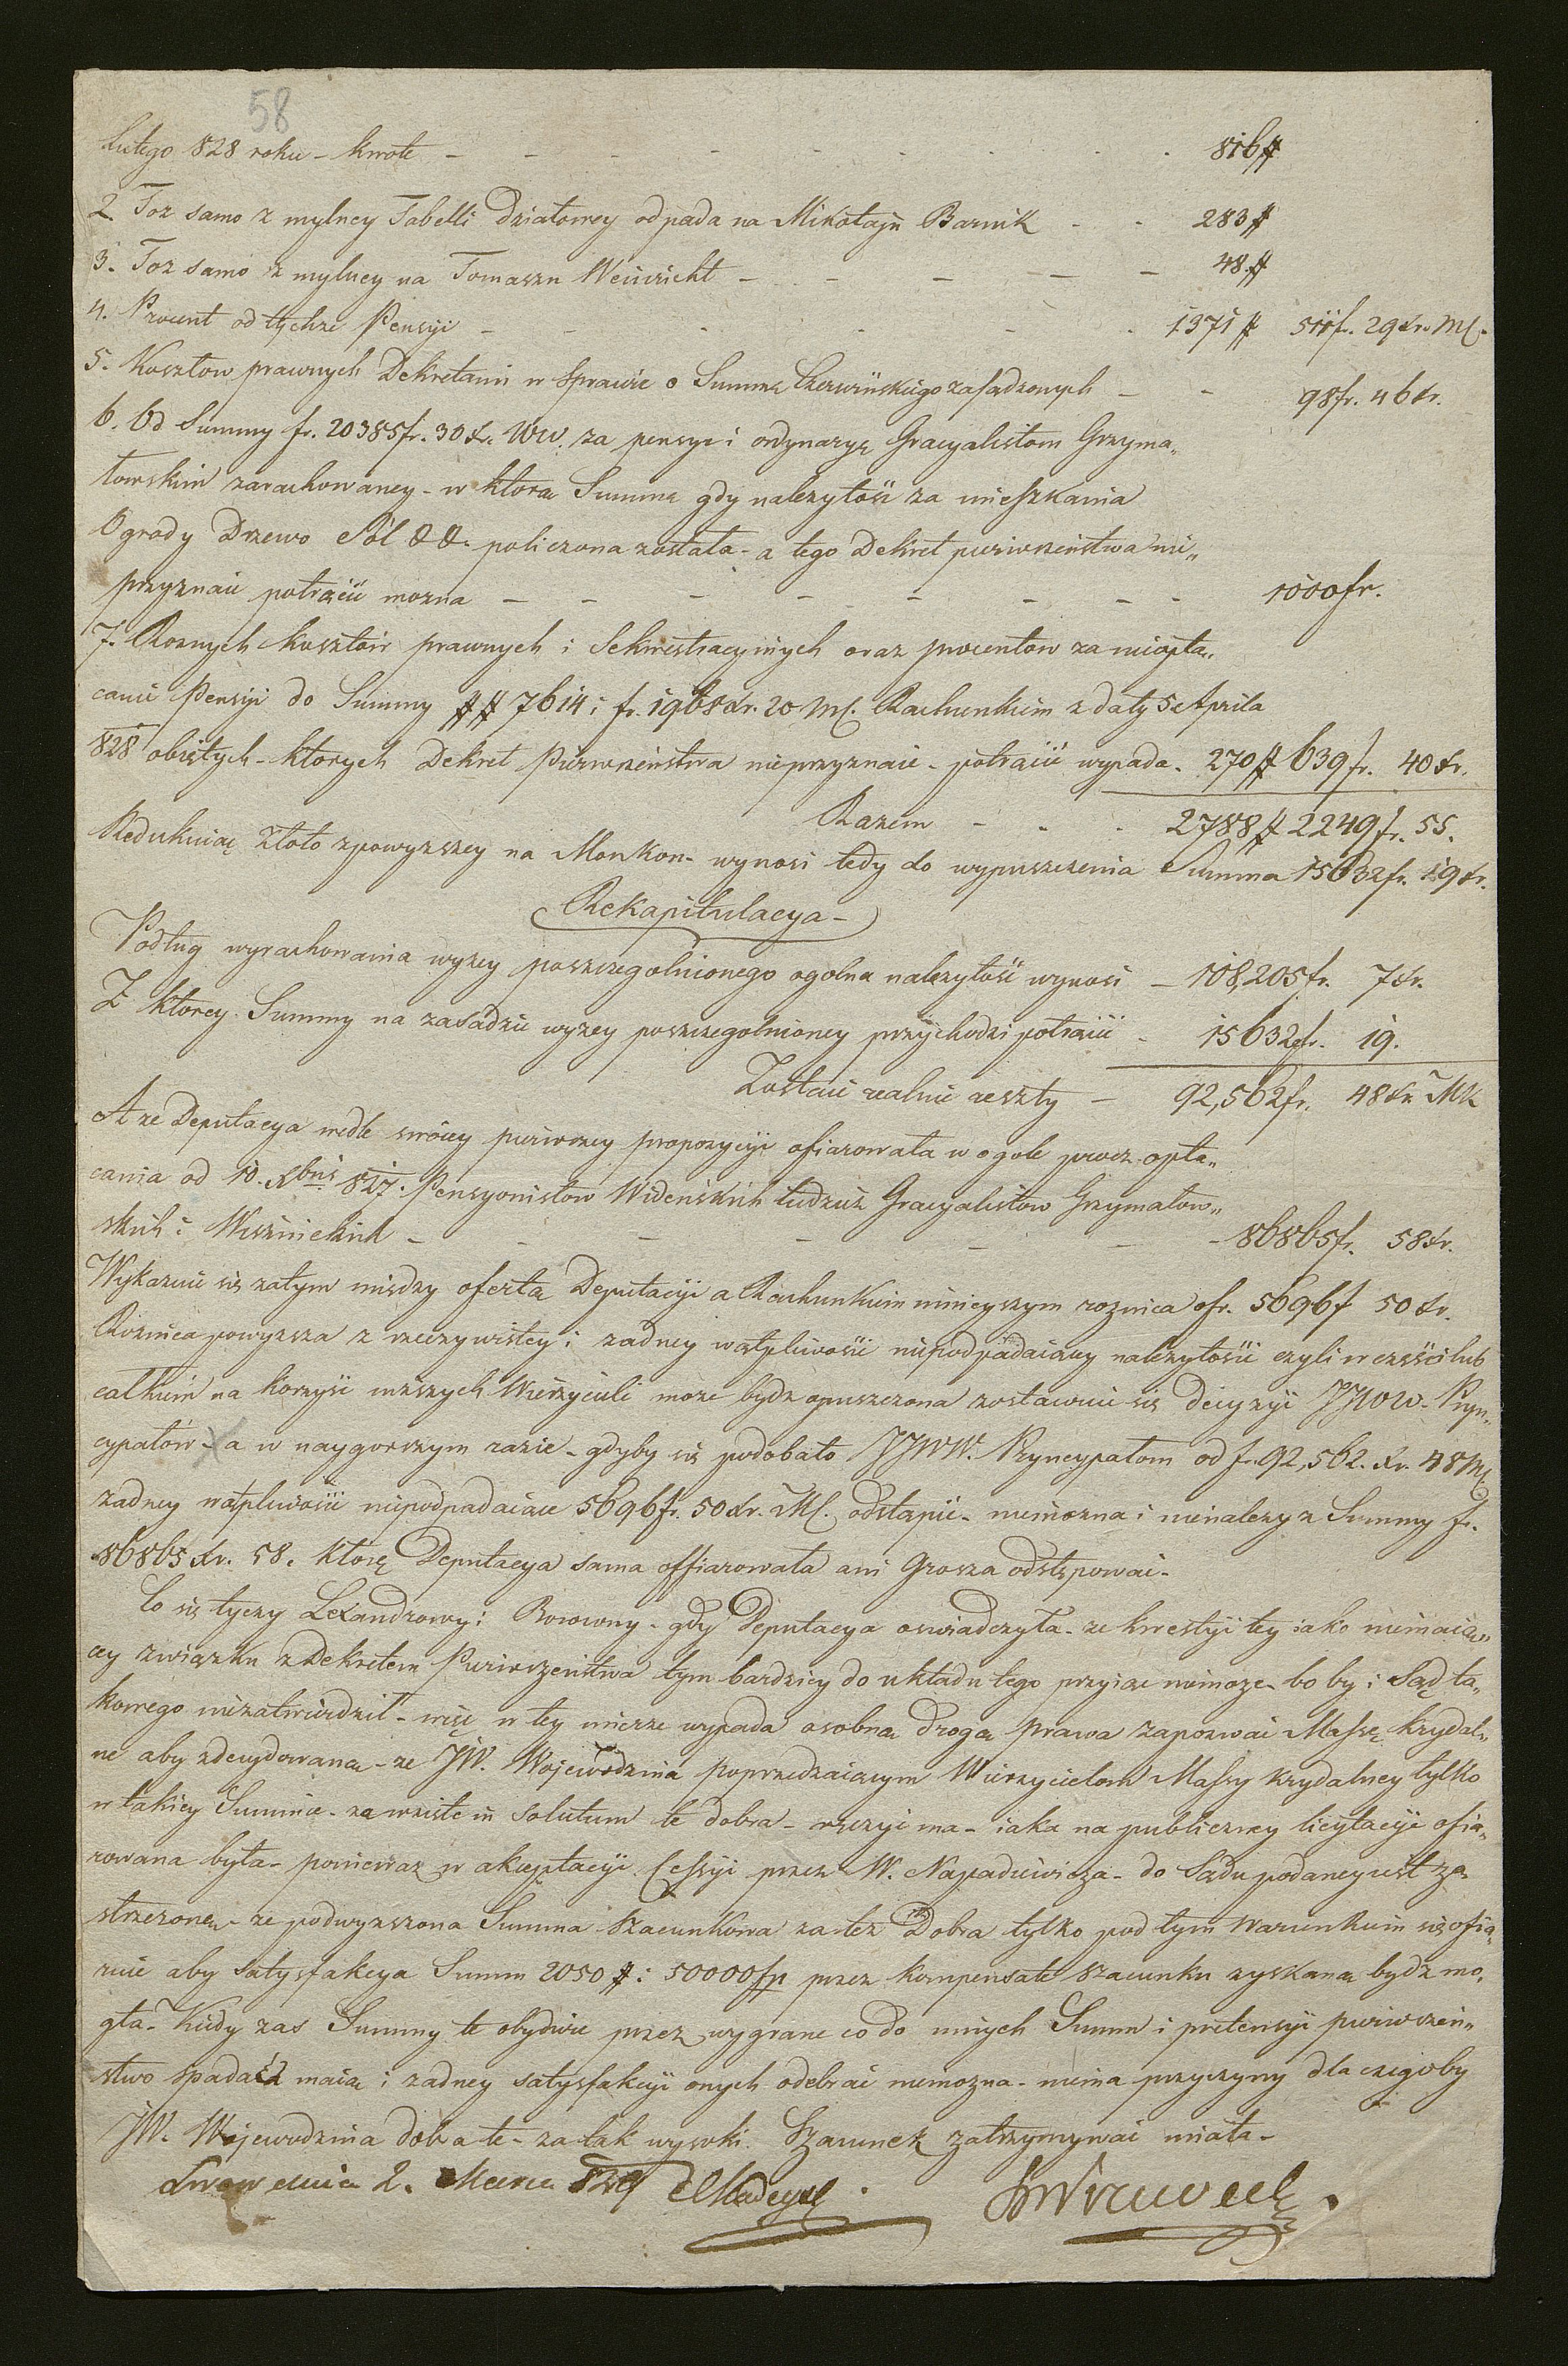 58
Lutego 828 roku - kwote - - - - - 816 #
2. Toz samo z mylney Tabelli Działowey odpada na Mikołaja Barnik - - 283 #
3. Toz samo z mylney na Tomaszu Weinricht - - - - - 48 #
4. Procent od tychze Pensyi - - - - 1371 # 511 fr. 29 Xr. MC.
5. Kosztow prawnych Dekretami w Sprawie o Summe Czerwińskiego zasądzonych - - 98 fr. 46 Xr.
6. Od Summy fr. 20385 fr. 30 Xr. WW. za pensye i ordynaryą Gracyalistom Grzyma„
łowskim zarachowaney - w ktora Summe gdy nalezytość za mieszkania
Ogrody Drzewo Sól && policzona została - a tego Dekret pierwszeństwa nie„
przyznaie potrącić mozna - - - - - - - 1000 fr.
7. Roznych kosztów prawnych i Sekwestracyinych oraz procentow za nieopła„
canie Pensyi do Summy ## 7614 i fr. 1968 Xr. 20 MC. Rachunkiem z daty 5 Aprila
828 obiętych - ktorych Dekret Pierwszeństwa nieprzyznaie - potrącić wypada - 270 # 639 fr. 40 Xr.
Razem - - - 2788 # 2249 fr. 55.
Redukuiąc złoto zpowyzszey na Monkon - wynosi tedy do wypuszczenia Summa 15632 fr. 19 Xr.
Rekapitulacya -
Podług wyrachowania wyzey poszczegolnionego ogolna nalezytość wynosi - 108,205 fr. 7 Xr.
Z ktorey Summy na zasadzie wyzey poszczegolnioney przychodzi potrącić - 15632 fr. 19.
Zostaie realnie reszty - 92,562 fr. 48 Xr MK
A ze Deputacya wedle swoiey pierwszey propozycyi ofiarowała w ogole procz opła„
cania od 10. Xbris 827. Pensyonistow Wideńskich tudziez Gracyalistow Grzymałow„
skich i Wisznickich - - - - - - 86865 fr. 58 Xr.
Wykazuie się zatym między ofertą Deputacyi a Rachunkiem ninieyszym roznica o fr. 5696 f 50 Xr.
Roznica powyzsza z rzeczywistey i zadney wątpliwości niepodpadaiącey nalezytości czyli w częsci lub
całkiem na korzyść inszych Wierzycieli moze bydz opuszczona zostawuie się decyzyi JJWW. Pryn„
cypałów - a w naygorszym razie - gdyby się podobało JJWW. Pryncypałom od fr. 92,562. Xr. 48 MC
zadney wątpliwości niepodpadaiące 5696 fr. 50 Xr. MC. odstąpić - niemozna i nienalezy z Summy fr.
86865 Xr. 58. ktorą Deputacya sama offiarowała ani Grosza odstępowac -
Co się tyczy Lexandrowy i Borowny - gdy Deputacya oswiadczyła - ze kwestyi tey iako niemaią„
cey związku z Dekretem Pierwszeństwa tym bardziey do układu tego przyiąc niemoze - bo by i Sąd ta„
kowego niezatwierdził - więc w tey mierze wypada osobną drogą prawa zapozwać Massę krydal„
ne aby zdecydowana - ze JW. Wojewodzina poprzedzaiącym Wierzycielom Massy krydalney tylko
w takiey Summie - za wzięte in solutum te dobra - ręczyć ma - iaka na publiczney licytacyi ofia„
rowana była - poniewaz w akceptacyi Cessyi przez W. Napadiewicza - do Sądu podaney iest za„
strzezone - ze podwyzszona Summa Szacunkowa za tez Dobra tylko pod tym warunkiem się ofia„
ruie aby Satysfakcya Summ 2050 # i 50000 fp przez kompensate szacunku zyskana bydz mo„
gła - Kiedy zas Summy te obydwie przez wygrane co do innych Summ i pretensyi pierwszeń„
stwo spadać maią i zadney satysfakcyi onych odebrać niemozna - niema przyczyny dla czegoby
JW. Wojewodzina dobra te - za tak wysoki Szacunek zatrzymywać miała -
Lwow dnia 2. Marca 829